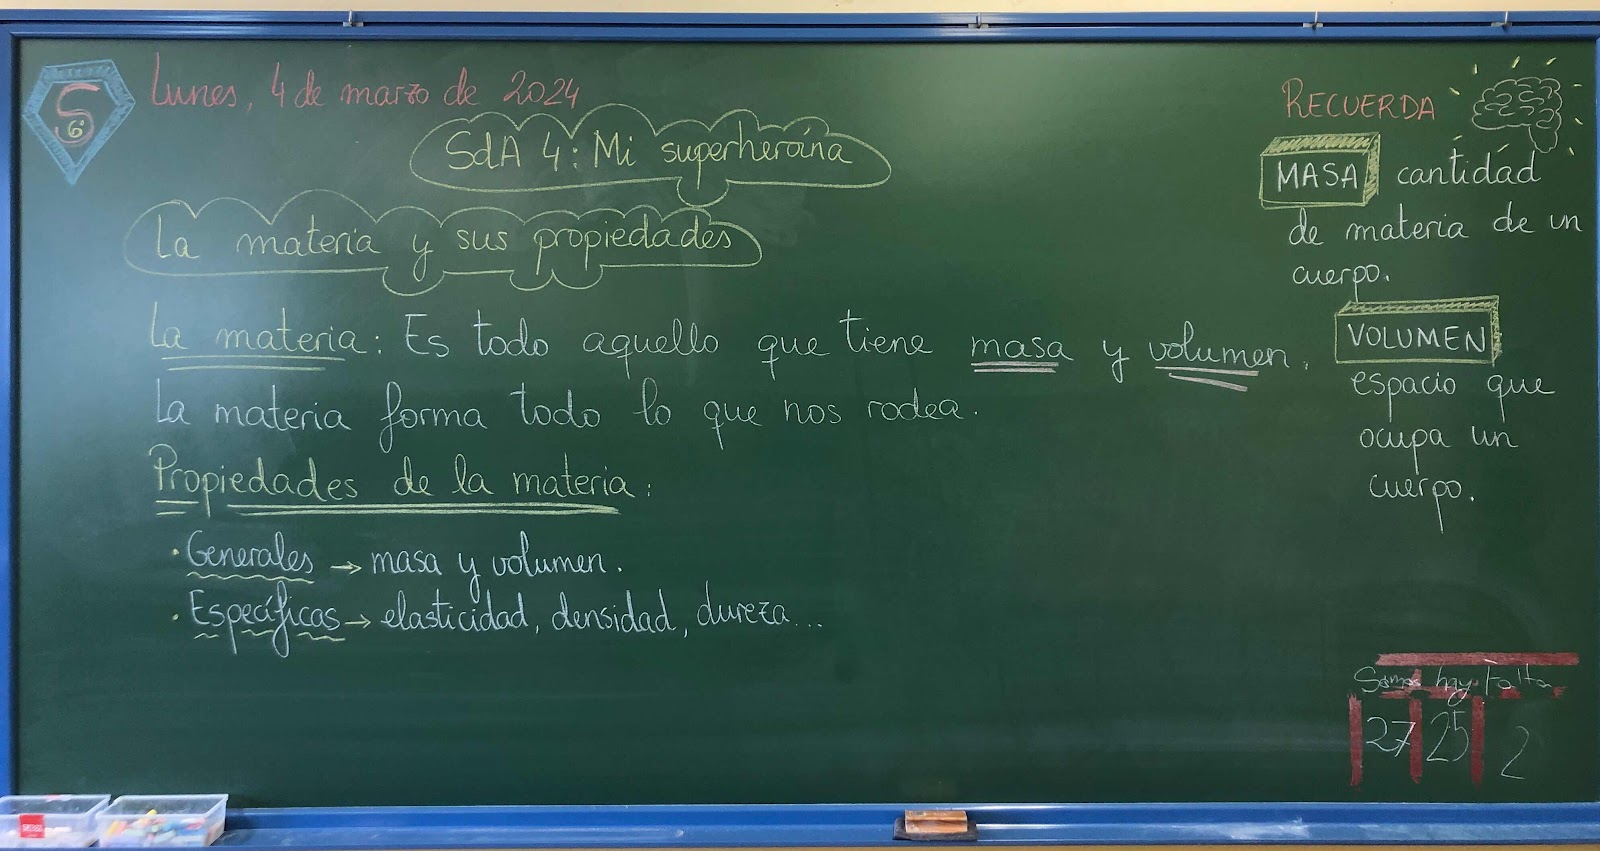 S
6º
Lunes, 4 de marzo de 2024
SdA 4: Mi superheroína
La materia y sus propiedades
La materia: Es todo aquello que tiene masa y volumen.
La materia forma todo lo que nos rodea.
Propiedades de la materia:
· Generales → masa y volumen.
· Específicas → elasticidad, densidad, dureza...
RECUERDA
MASA cantidad
de materia de un
cuerpo.
VOLUMEN
espacio que
ocupa un
cuerpo.
Somos hay falta
27 25 2